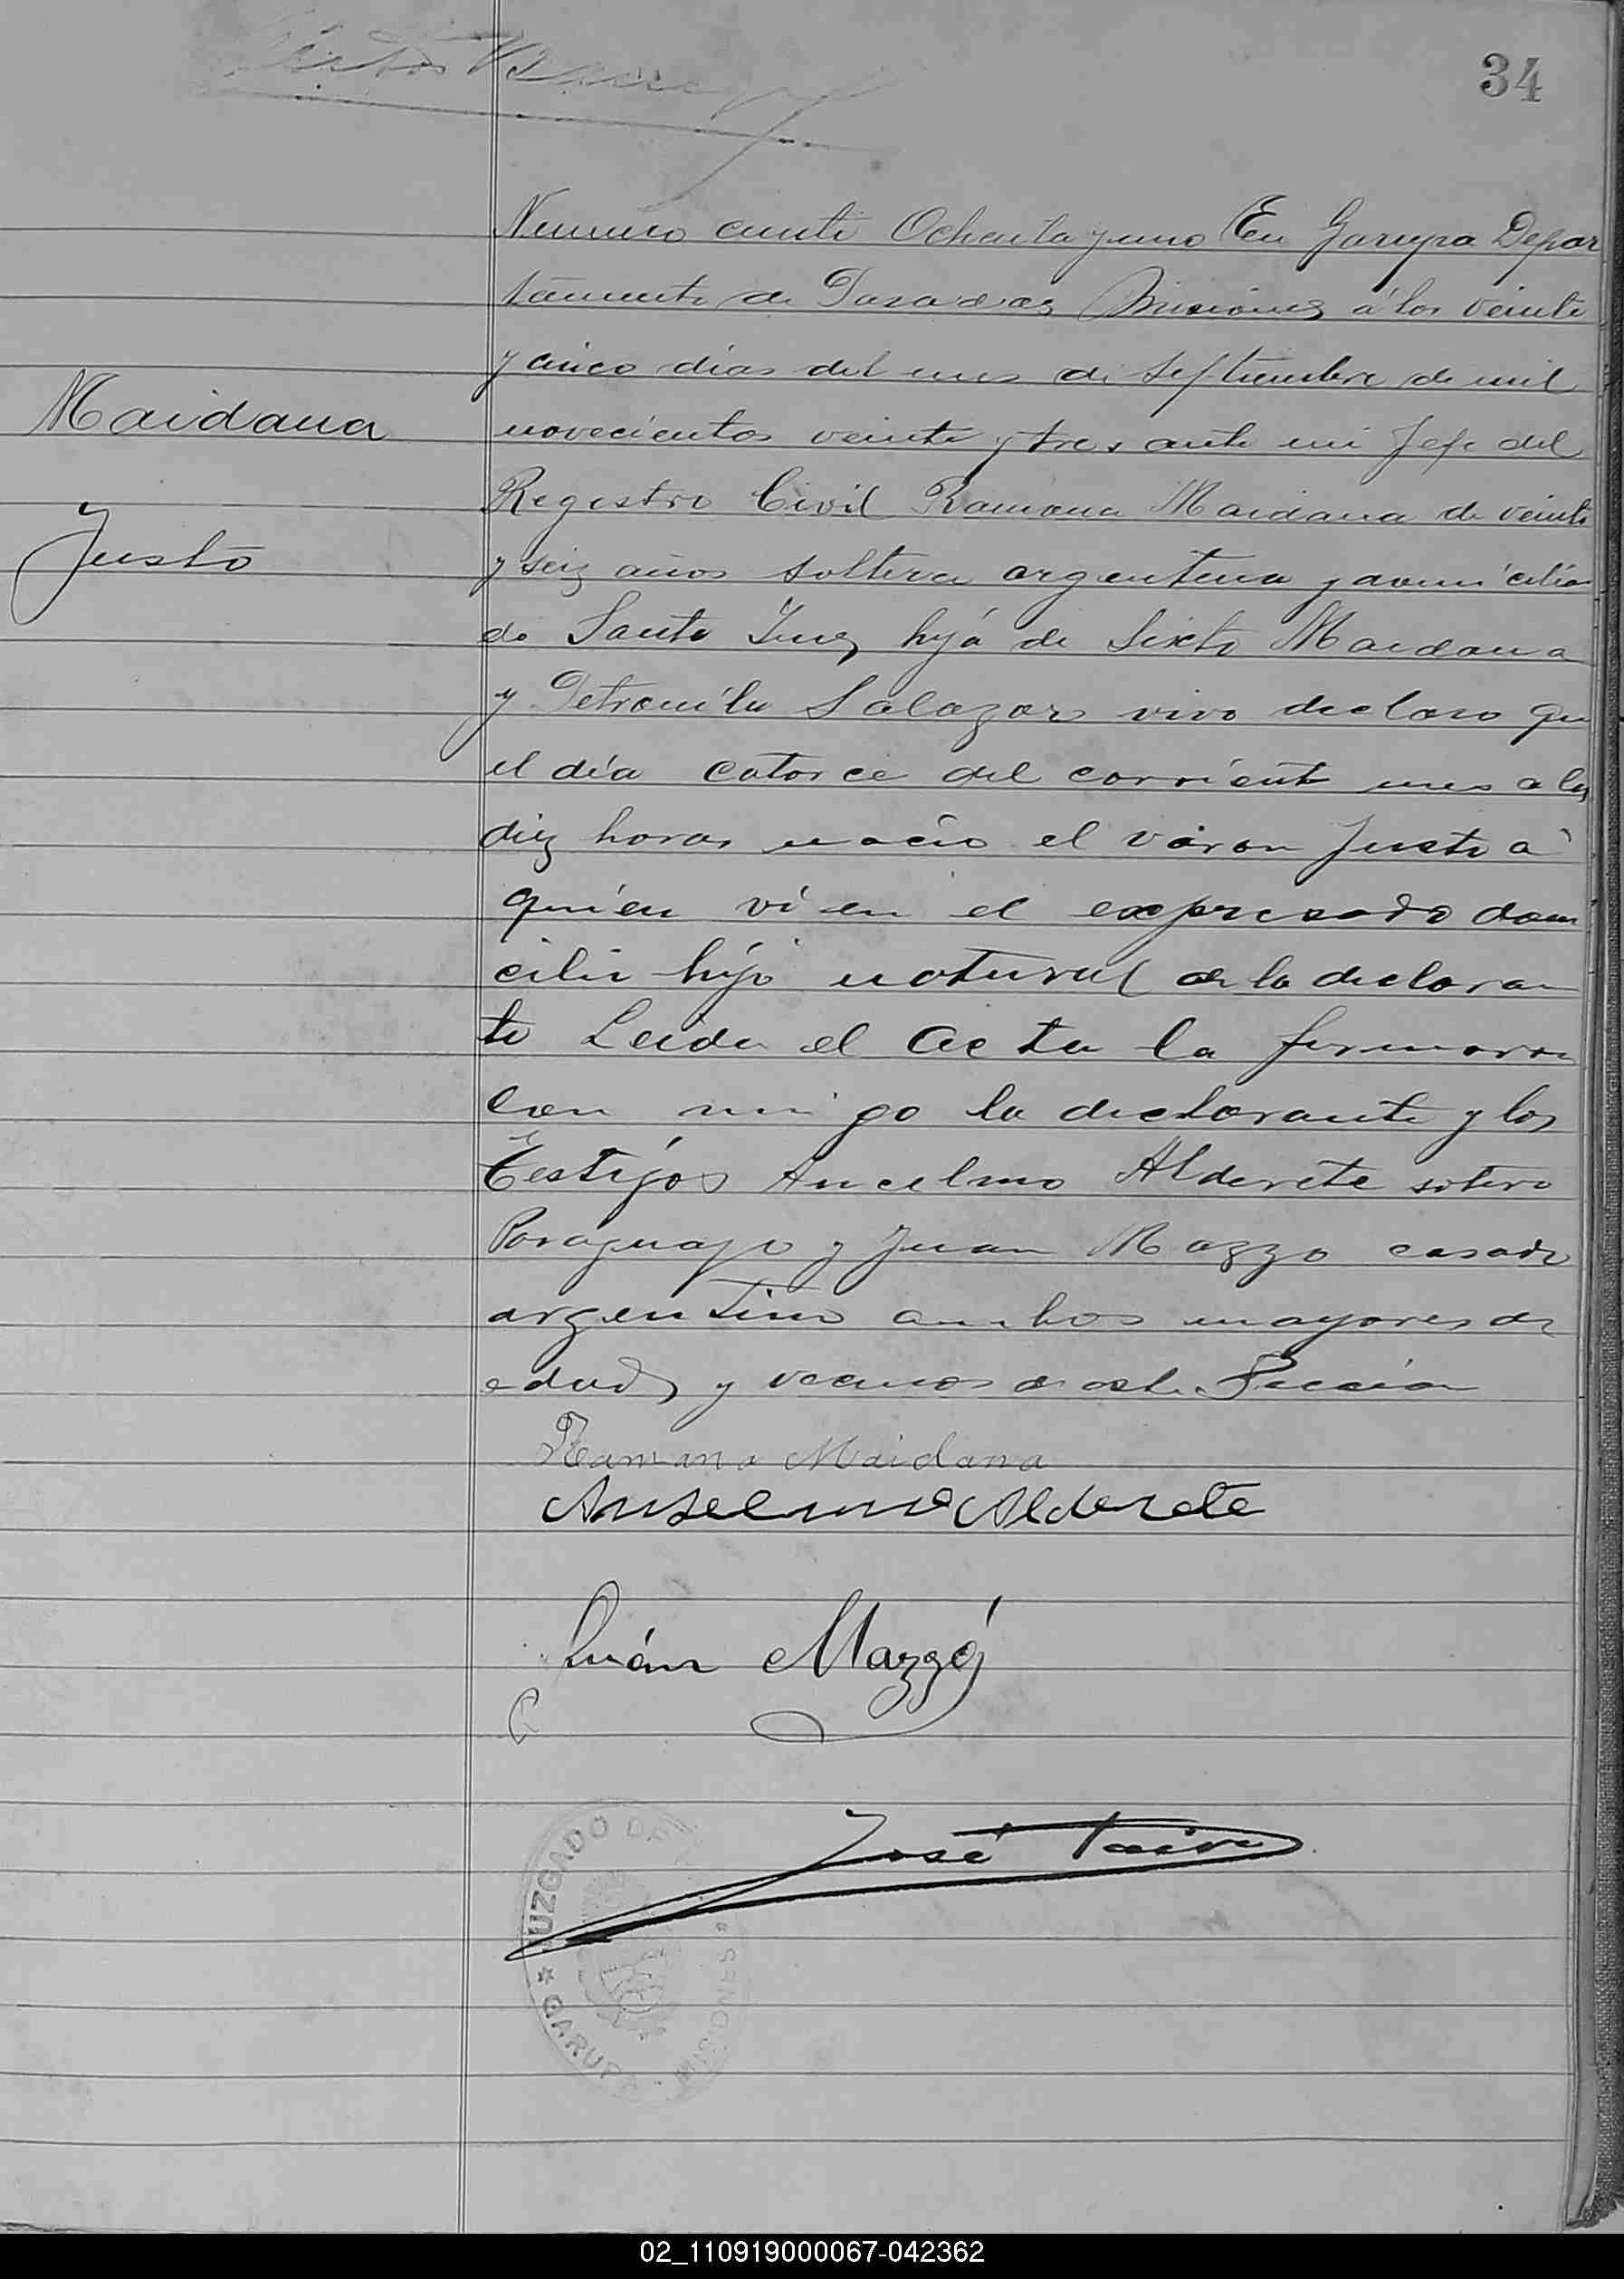 34
Numero ciento Ochenta y uno En Garupa Depar
tamento de Posadas Misiones á los veinte
y cinco dias del mes de Septiembre de mil
novecientos veinte y tres ante mi Jefe del
Maidana
Registro Civil Ramona Maidana de veinte
Justo
y seiz años soltera argentina y domicilia
do Santa Inez hija de Sixto Maidana
y Petronila Salazar vivo declaro que
el día catorce del corriente mes a las
diez horas nacio el varon Justo á
quien vi en el expresado domi
cilio hijo natural de la declaran
te Leida el acta la firmaron
con migo la declarante y los
Testigos Ancelmo Alderete soltero
Paraguayo y Juan Mazzo casado
argentino ambos mayores de
edad y vecinos de esta Seccion
Ramona Maidana
Anselmo Alderete
Juán Mazzó
José Paiva
JUZGADO DE
GARUPA - MISIONES
02_110919000067-042362